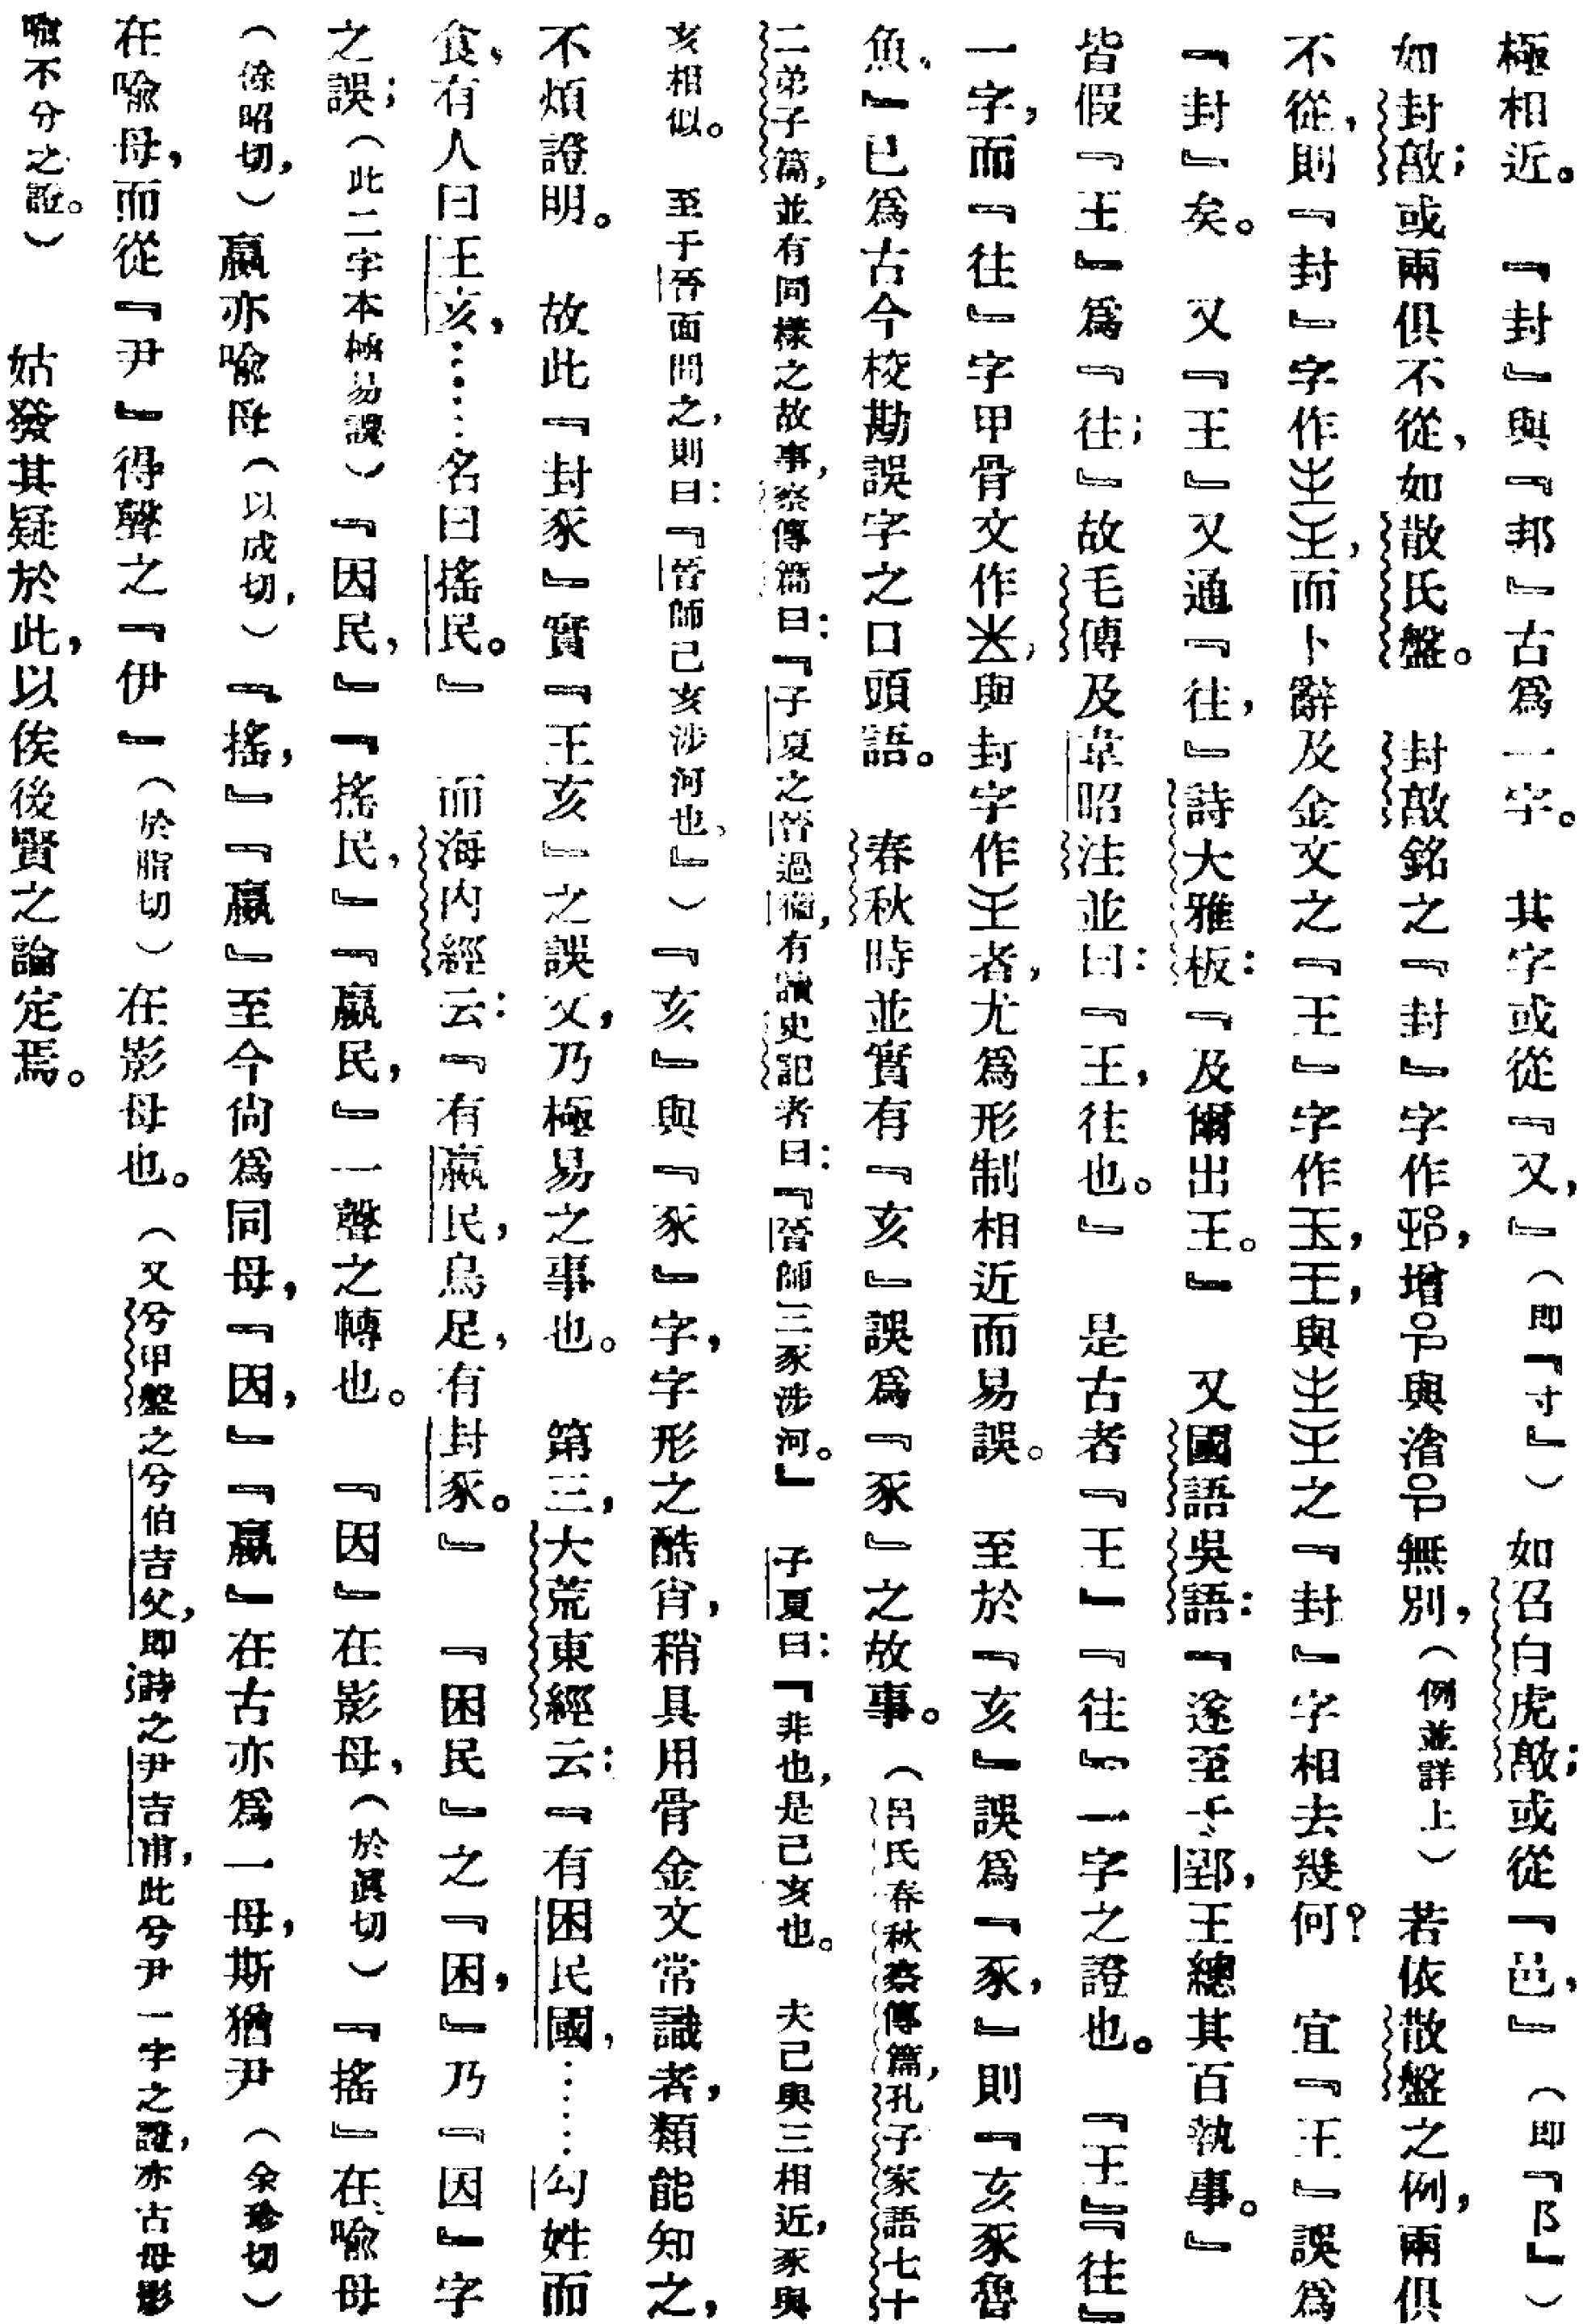 極相近。 『封』與『邦』古爲一字。 其字或從『又,』(即『寸』) 如召白虎敦;或從『邑,』(即『阝』)
如封敦;或兩俱不從,如散氏盤。 封敦銘之『封』字作,增與渻無別,(例並詳上) 若依散盤之例,兩俱
不從,則『封』字作,而卜辭及金文之『王』字作,與之『封』字相去幾何? 宜『王』誤爲
『封』矣。 又『王』又通『往,』詩大雅板:『及爾出王。』 又國語吳語:『遂至于郢,王總其百執事。』
皆假『王』爲『往;』故毛傳及韋昭注並曰:『王,往也。』 是古者『王』『往』一字之證也。 『王』『往』
一字,而『往』字甲骨文作,與封字作者,尤爲形制相近而易誤。 至於『亥』誤爲『豕,』則『亥豕魯
魚。』已爲古今校勘誤字之口頭語。 春秋時並實有『亥』誤爲『豕』之故事。(呂氏春秋察傳篇,孔子家語七十
二弟子篇,並有同樣之故事,察傳篇曰:『子夏之晉過衞,有讀史記者曰:『晉師三豕涉河。』 子夏曰:『非也,是己亥也。 夫己與三相近,豕與
亥相似。 至于晉而問之,則曰:『晉師己亥涉河也。』)『亥』與『豕』字,字形之酷肖,稍具用骨金文常識者,類能知之,
不煩證明。 故此『封豕』實『王亥』之誤文,乃極易之事也。 第三,大荒東經云:『有困民國,……勾姓而
食,有人曰王亥,……名曰搖民。』 而海內經云:『有嬴民,鳥足,有封豕。』 『困民』之『困,』乃『因』字
之誤;(此二字本極易誤)『因民,』『搖民,』『嬴民,』一聲之轉也。 『因』在影母,(於眞切)『搖』在喩母
(餘昭切,)嬴亦喩母(以成切,)『搖,』『嬴』至今尙爲同母,『因,』『嬴』在古亦爲一母,斯猶尹(余珍切)
在喩母,而從『尹』得聲之『伊』(於脂切)在影母也。(又兮甲盤之兮伯吉父,即詩之尹吉甫,此兮尹一字之證,亦古母影
喩不分之證。) 姑發其疑於此,以俟後賢之論定焉。